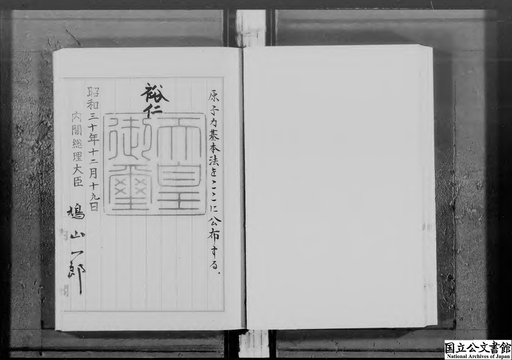 原子力基本法をここに公布する。
裕仁
天皇
御璽
昭和三十年十二月十九日
内閣総理大臣 鳩山一郎
国立公文書館
National Archives of Japan